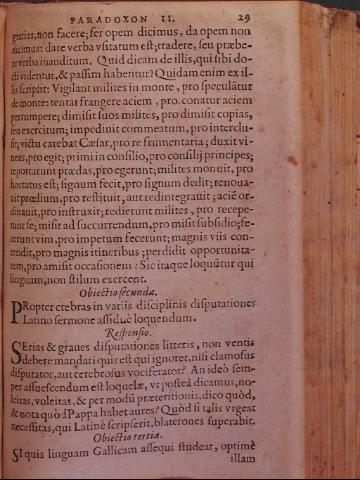 PARADOXON II. 29
gratias, non facere; fer opem dicimus, da opem non
dicimus: dare verba vsitatum est; tradere, seu præbe-
re verba inauditum. Quid dicam de illis, qui sibi do-
cti videntur, & passim habentur? Quidam enim ex il-
lis scripsit: Vigilant milites in monte, pro speculātur
de monte: tentat frangere aciem, pro. conatur aciem
perrumpere; dimisit suos milites, pro dimisit copias,
seu exercitum; impediuit commeatum, pro interclu-
sit; victu carebat Cæsar, pro re frumentaria; duxit vi-
neas, pro egit; primi in consilio, pro consilij principes;
reportarunt prædas, pro egerunt; milites monuit, pro
hortatus est; signum fecit, pro signum dedit; renoua-
uit prælium, pro restituit, aut redintegrauit; aciē or-
dinauit, pro instruxit; redierunt milites, pro recepe-
runt se; misit ad succurrendum, pro misit subsidio; fe-
cerunt vim, pro impetum fecerunt; magnis viis con-
tendit, pro magnis itineribus; perdidit opportunita-
tem, pro amisit occasionem? Sic itaque loquūtur qui
linguam, non stilum exercent.
Obiectio secunda.
PRopter crebras in variis disciplinis disputationes
Latino sermone assiduè loquendum.
Responsio.
SErias & graues disputationes litteris, non ventis
debere mandari quis est qui ignoret, nisi clamosus
disputator, aut cerebrosus vociferator? An ideò sem-
per assuescendum est loquelæ, vt posteà dicamus, no-
leitas, voleitas, & per modū præteritionis, dico quòd,
& nota quòd Pappa habet aures? Quòd si talis vrgeat
necessitas, qui Latinè scripserit, blaterones superabit.
Obiectio tertia.
SI quis linguam Gallicam assequi studeat, optimè
illam